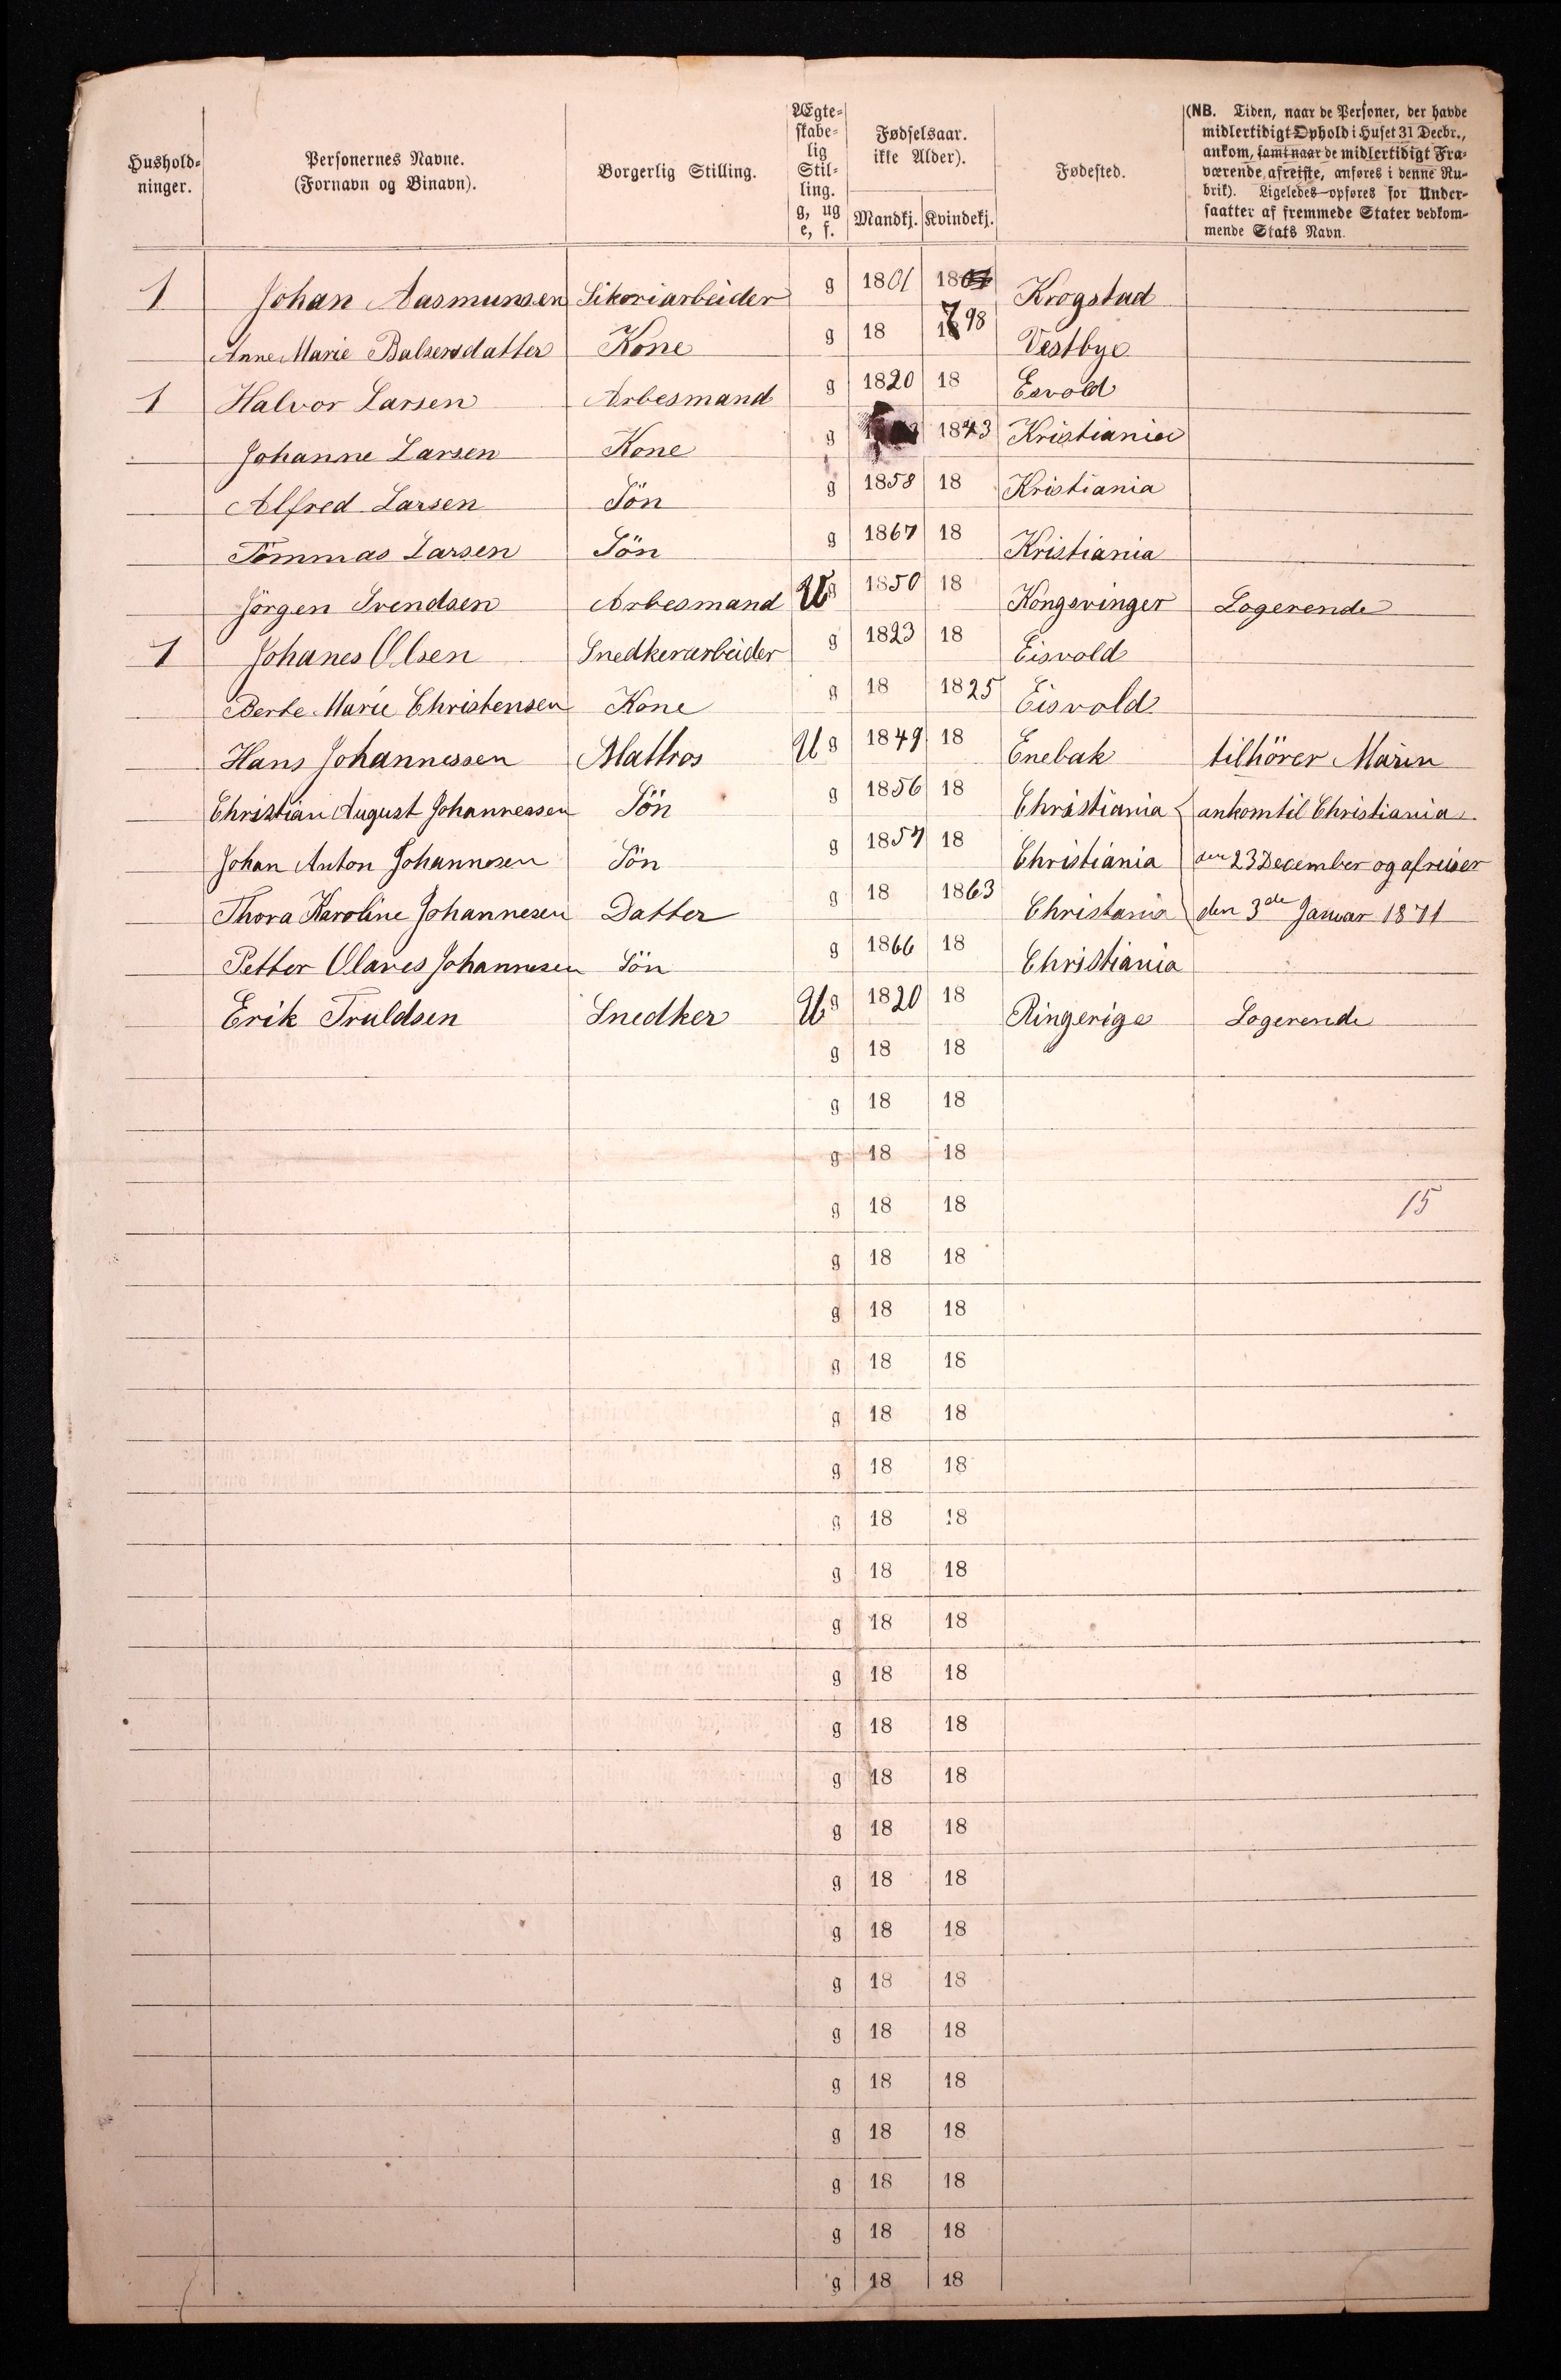 Hushold-
ninger.
Personernes Navne.
(Fornavn og Binavn).
Borgerlig Stilling.
Ægte-
skabe-
lig
Stil-
ling.
g, ug
e, f.
Fødselsaar.
ikke Alder).
Mandkj. Kvindekj.
Fødested.
(NB. Tiden, naar de Personer, der havde
midlertidigt Ophold i Huset 31 Decbr.,
ankom, samt naar de midlertidigt Fra-
værende afreiste, anføres i denne Ru-
brik). Ligeledes opføres for Under-
saatter af fremmede Stater vedkom-
mende Stats Navn.
1 Johan Aasmunsen Sikoriarbeider g 1801 18 Krogstad
Anne Marie Balsersdatter Kone g 18 1798 Vestbye
1 Halvor Larsen Arbesmand g 1820 18 Esvold
Johanne Larsen Kone g 1843 Kristiania
Alfred Larsen Sön g 1858 18 Kristiania
Tommas Larsen Sön g 1867 18 Kristiania
Jörgen Svendsen Arbesmand Ug 1850 18 Kongsvinger Logerende
1 Johanes Olsen Snedkerarbeider g 1823 18 Eisvold
Berte Marie Christensen Kone g 18 1825 Eisvold
Hans Johannessen Mattros Ug 1849 18 Enebak tilhörer Marin
Christian August Johannessen Sön g 1856 18 Christiania ankom til Christiania
Johan Anton Johannesen Sön g 1857 18 Christiania den 23 December og afreiser
Thora Karoline Johannesen Datter g 18 1863 Christania den 3de Januar 1871
Petter Olaves Johannesen Sön g 1866 18 Christiania
Erik Truldsen Snedker Ug 1820 18 Ringerige Logerende
g 18 18
g 18 18
g 18 18
g 18 18 15
g 18 18
g 18 18
g 18 18
g 18 18
g 18 18
g 18 18
g 18 18
g 18 18
g 18 18
g 18 18
g 18 18
g 18 18
g 18 18
g 18 18
g 18 18
g 18 18
g 18 18
g 18 18
g 18 18
g 18 18
g 18 18